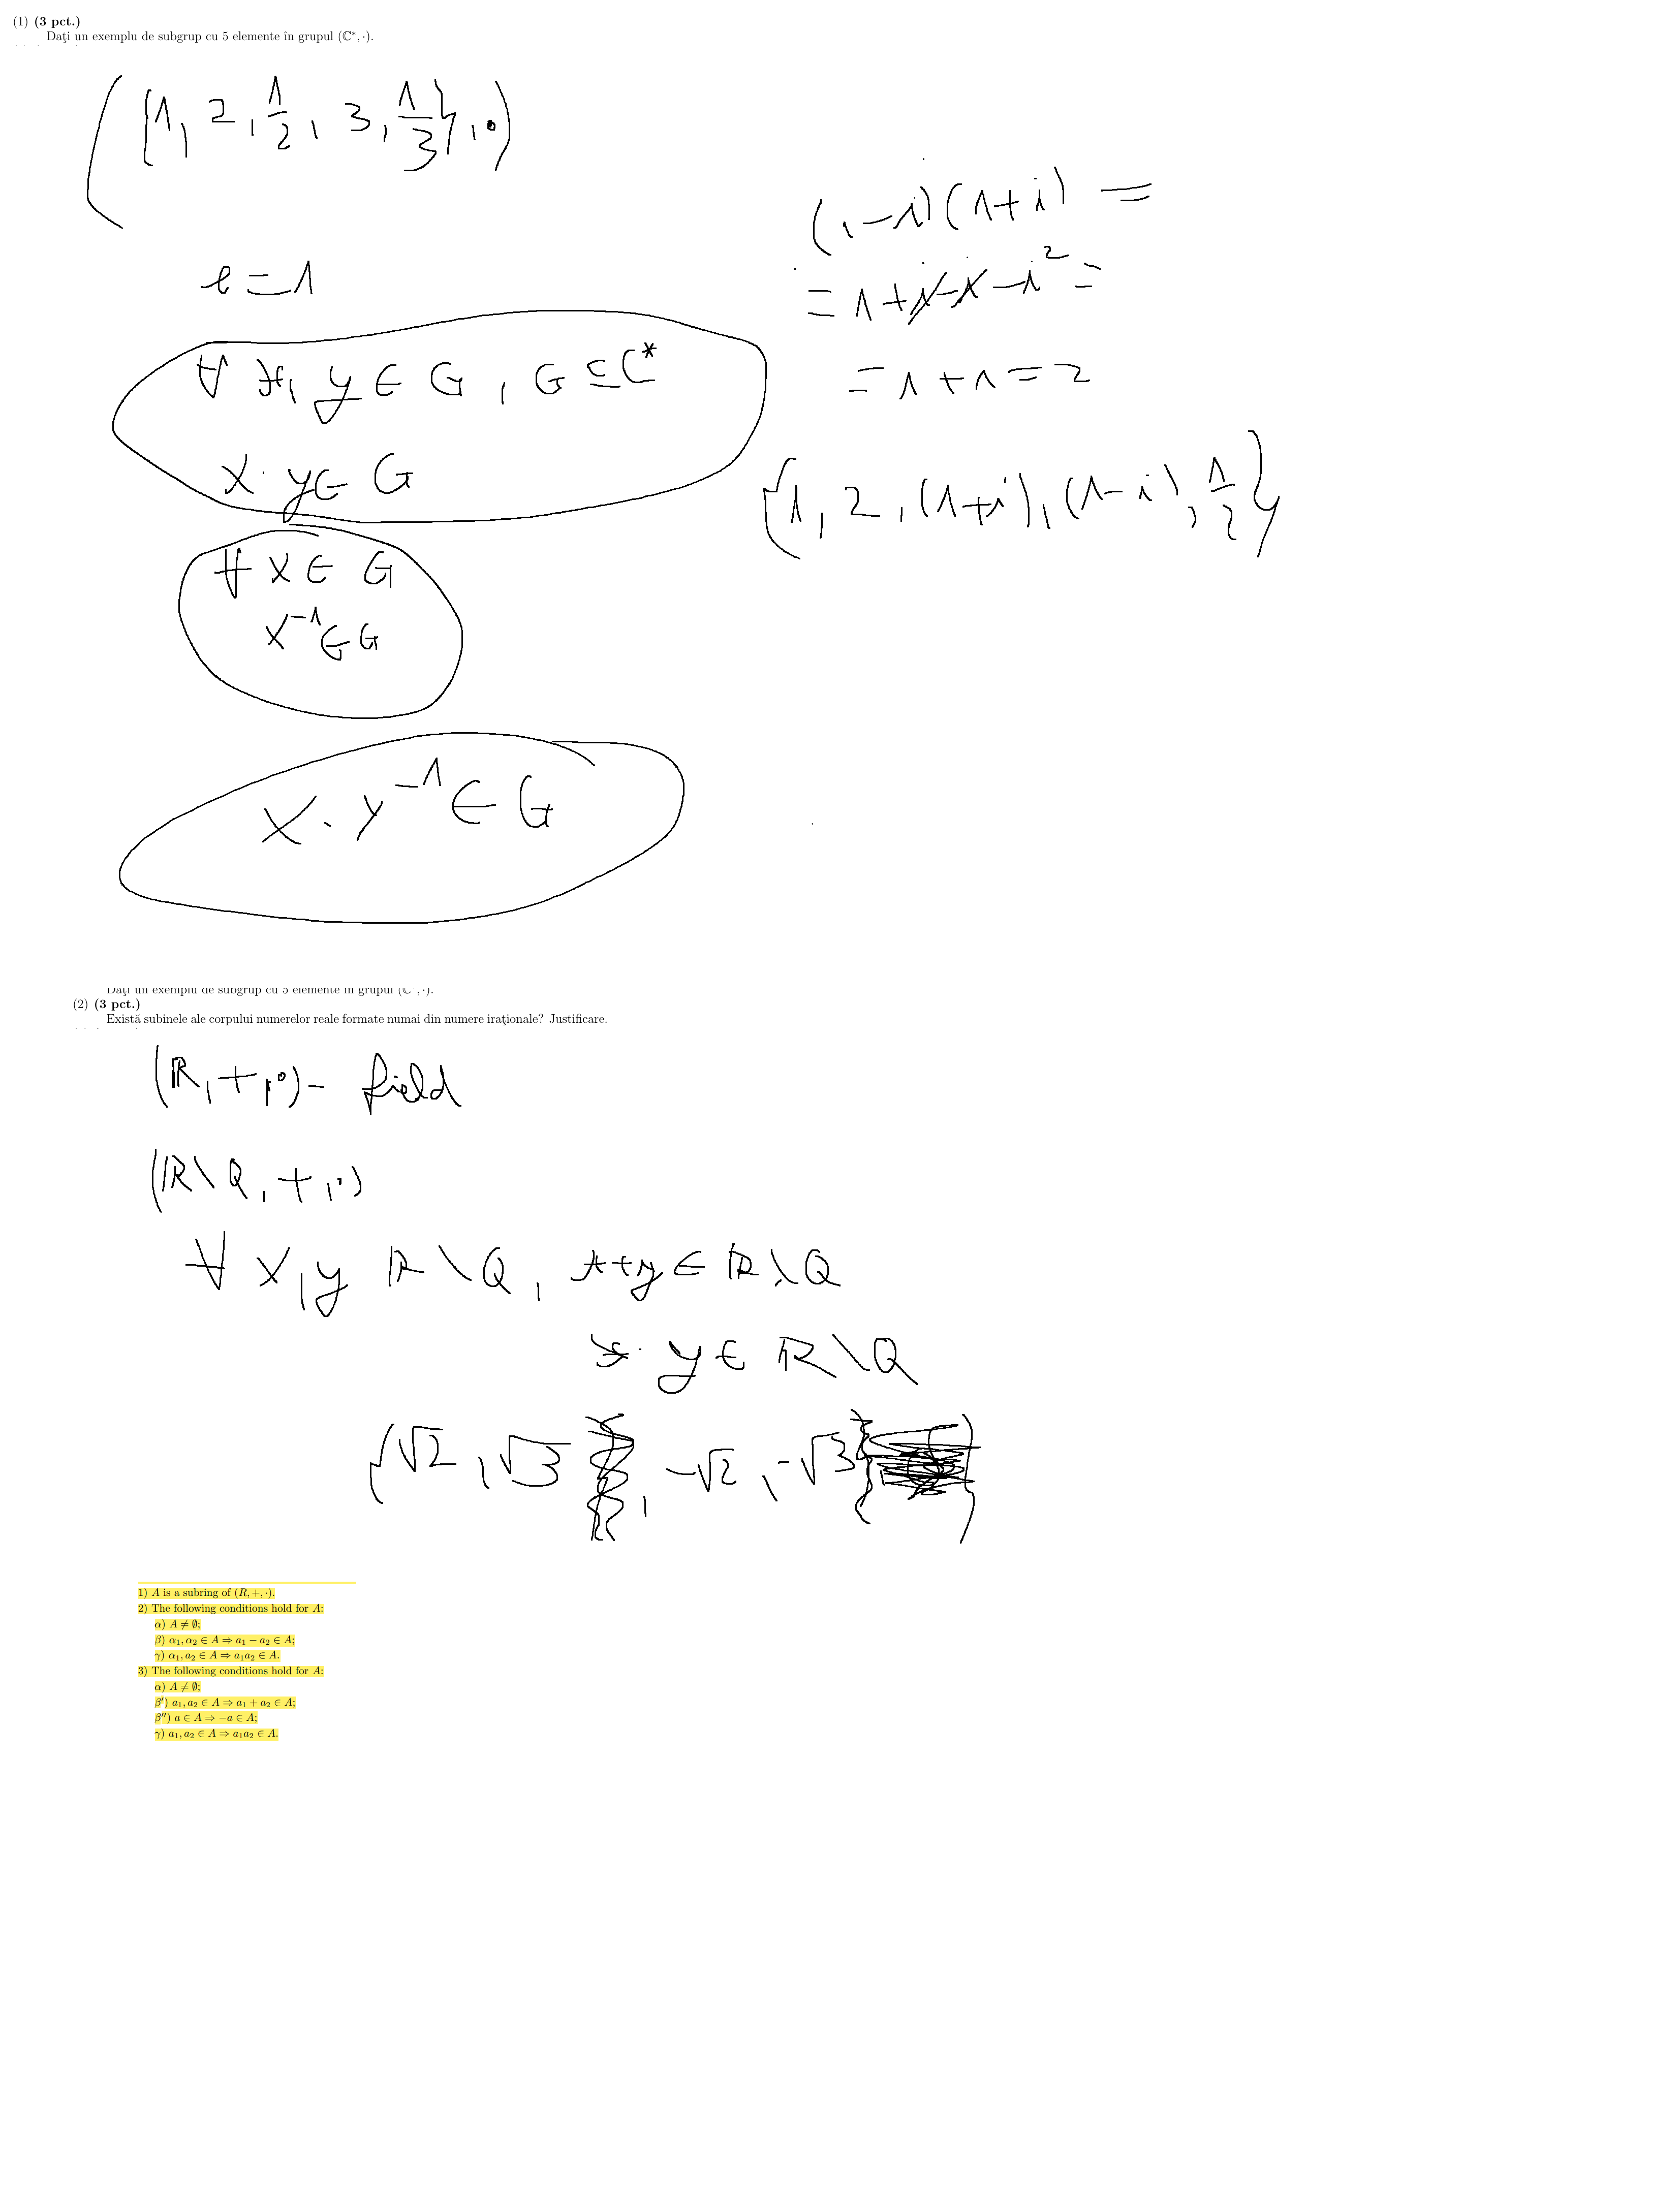 (1) (3 pct.)
Daţi un exemplu de subgrup cu 5 elemente în grupul (ℂ*, ·).
({1, 2, 1/2, 3, 1/3}, ·)
e = 1
∀ x, y ∈ G, G ⊆ ℂ*
x · y ∈ G
∀ x ∈ G
x⁻¹ ∈ G
x · y⁻¹ ∈ G
(1-i)(1+i) =
= 1 + i - i - i² =
= 1 + 1 = 2
{1, 2, (1+i), (1-i), 1/2}
Daţi un exemplu de subgrup cu 5 elemente în grupul (ℂ*, ·).
(2) (3 pct.)
Există subinele ale corpului numerelor reale formate numai din numere iraţionale? Justificare.
(ℝ, +, ·) - field
(ℝ\Q, +, ·)
∀ x, y ℝ\Q, x+y ∈ ℝ\Q
x · y ∈ ℝ\Q
{√2, √3, -√2, -√3}
1) A is a subring of (R, +, ·).
2) The following conditions hold for A:
α) A ≠ ∅;
β) α₁, α₂ ∈ A ⇒ a₁ − a₂ ∈ A;
γ) α₁, a₂ ∈ A ⇒ a₁a₂ ∈ A.
3) The following conditions hold for A:
α) A ≠ ∅;
β′) a₁, a₂ ∈ A ⇒ a₁ + a₂ ∈ A;
β″) a ∈ A ⇒ −a ∈ A;
γ) a₁, a₂ ∈ A ⇒ a₁a₂ ∈ A.